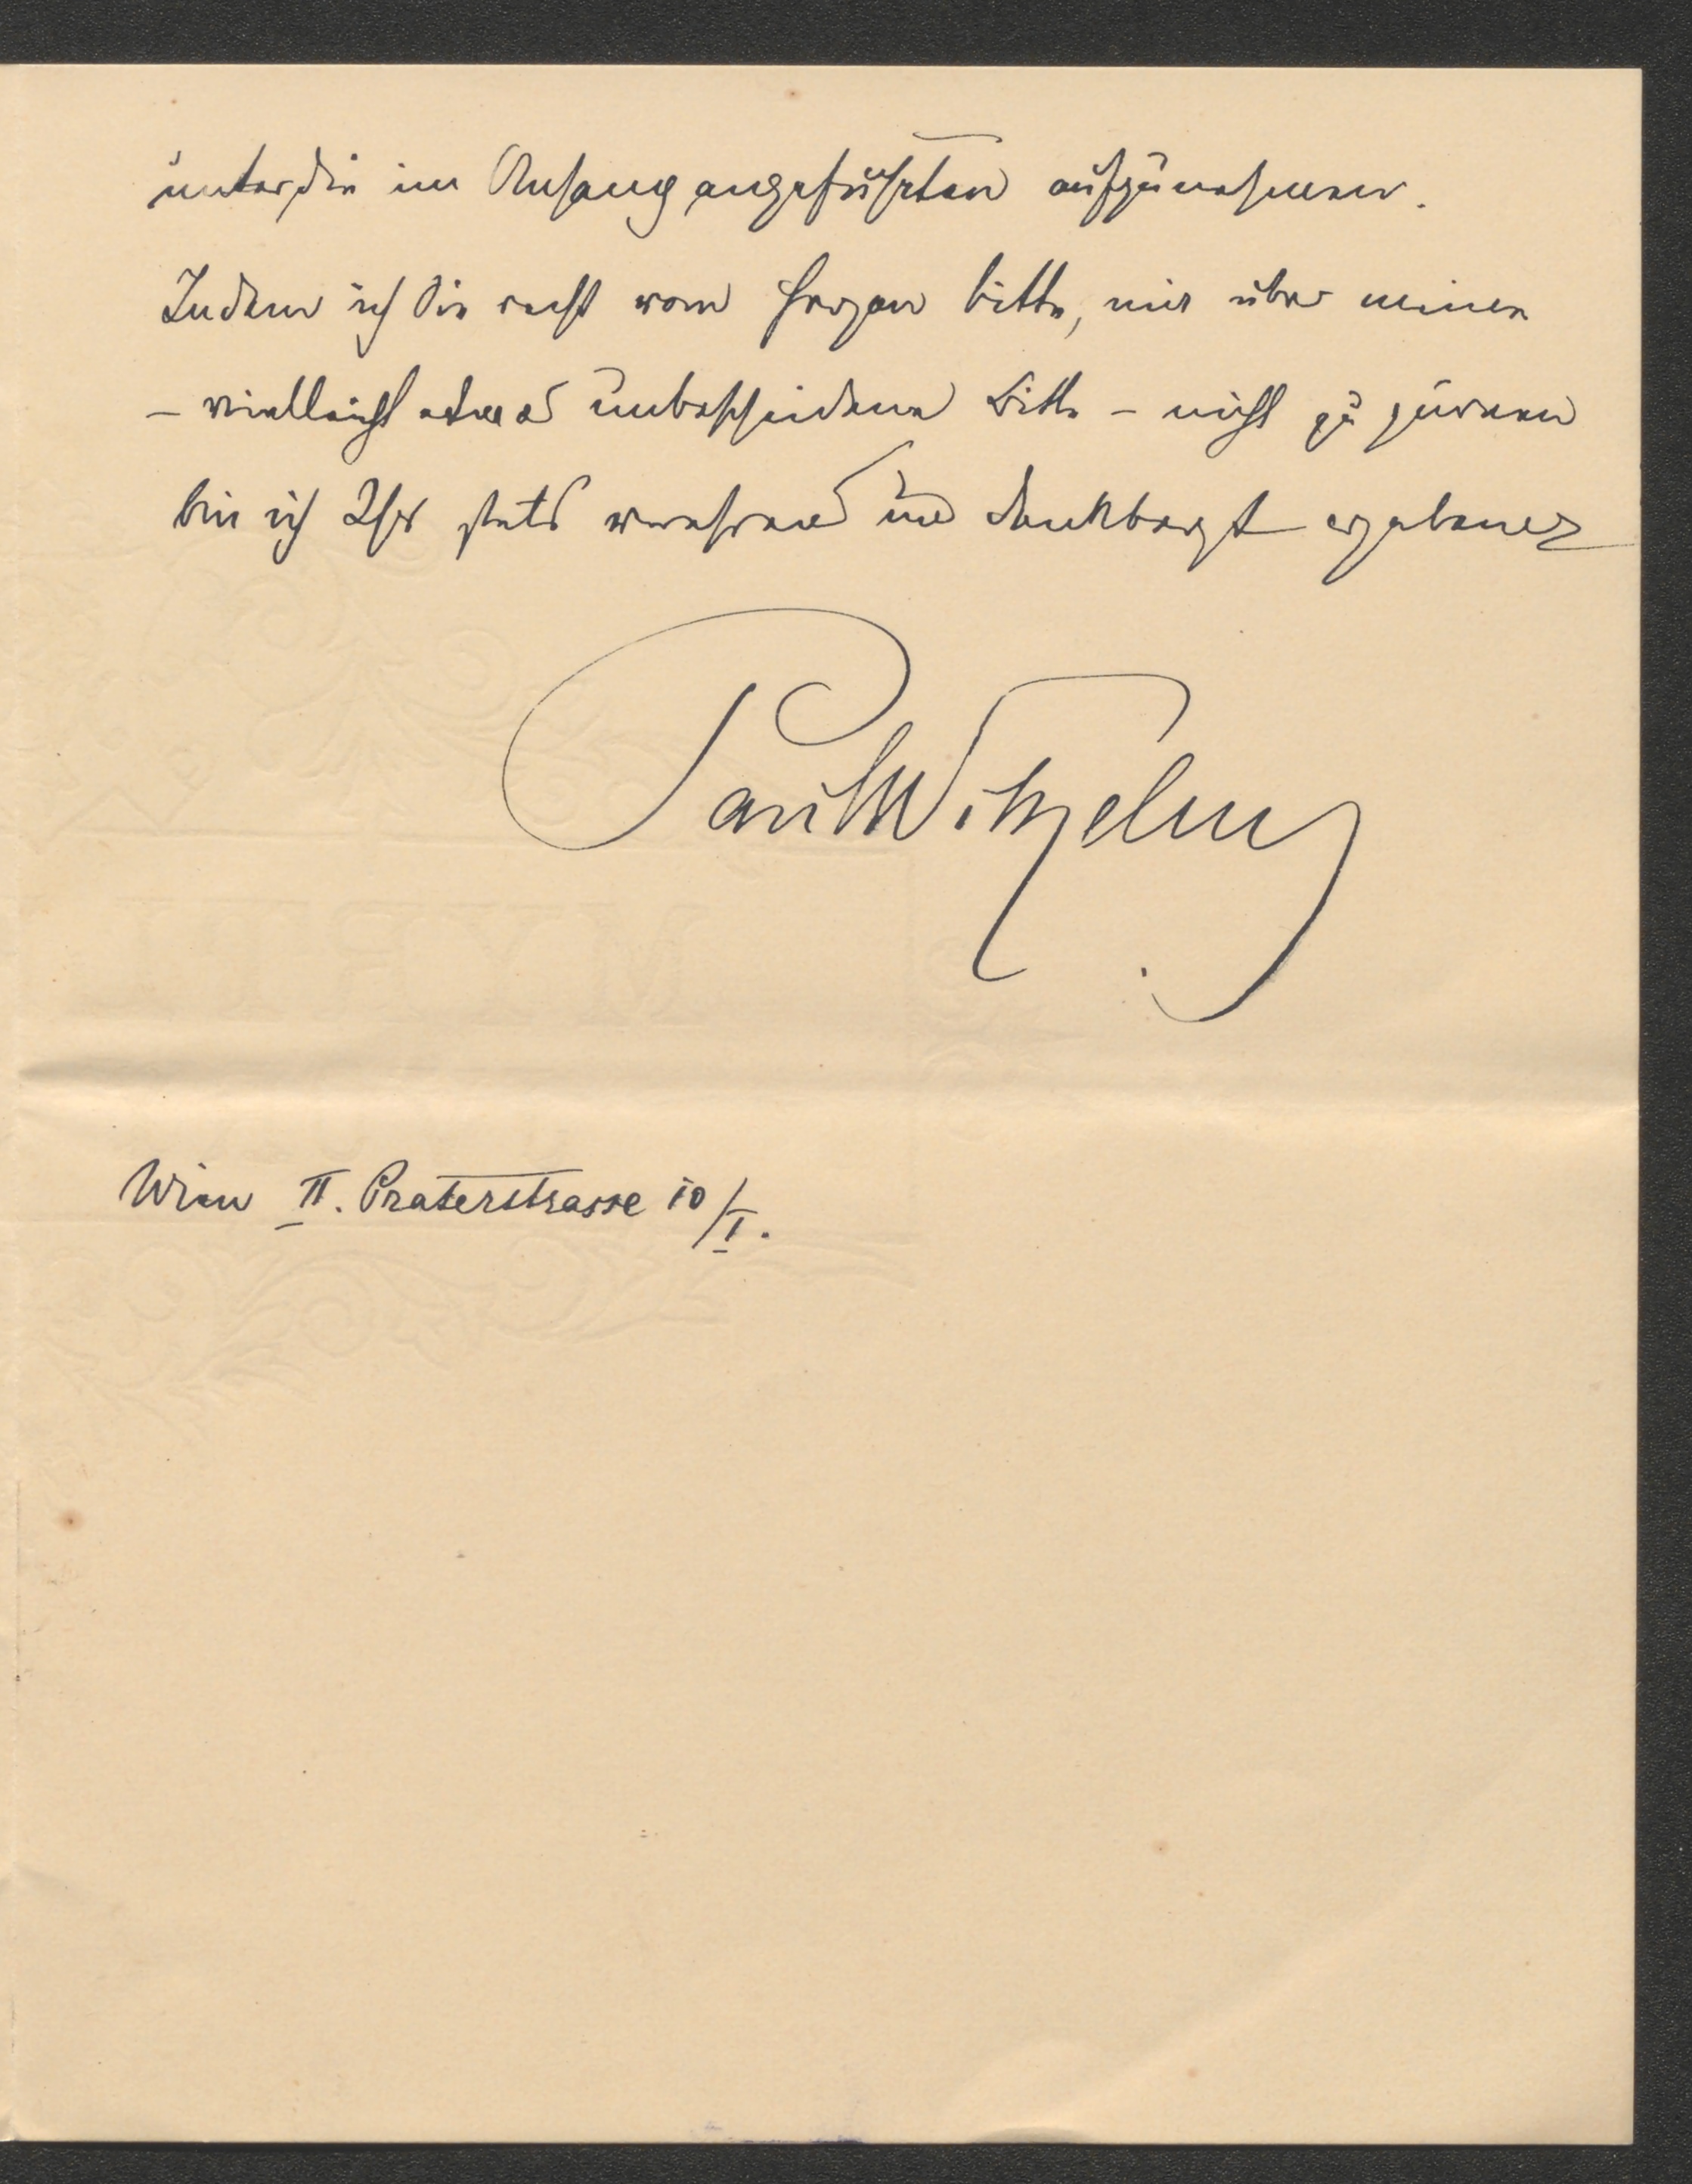 unter die im Anhang angeführten aufzunehmen.
Indem ich Sie recht vom Herzen bitte, mir über meine
– vielleicht etwas unbescheidene Bitte – nicht zu zürnen
bin ich Ihr stets verehrend und dankbarst ergebener
Paul Wilhelm
Wien II. Praterstrasse 10/I.